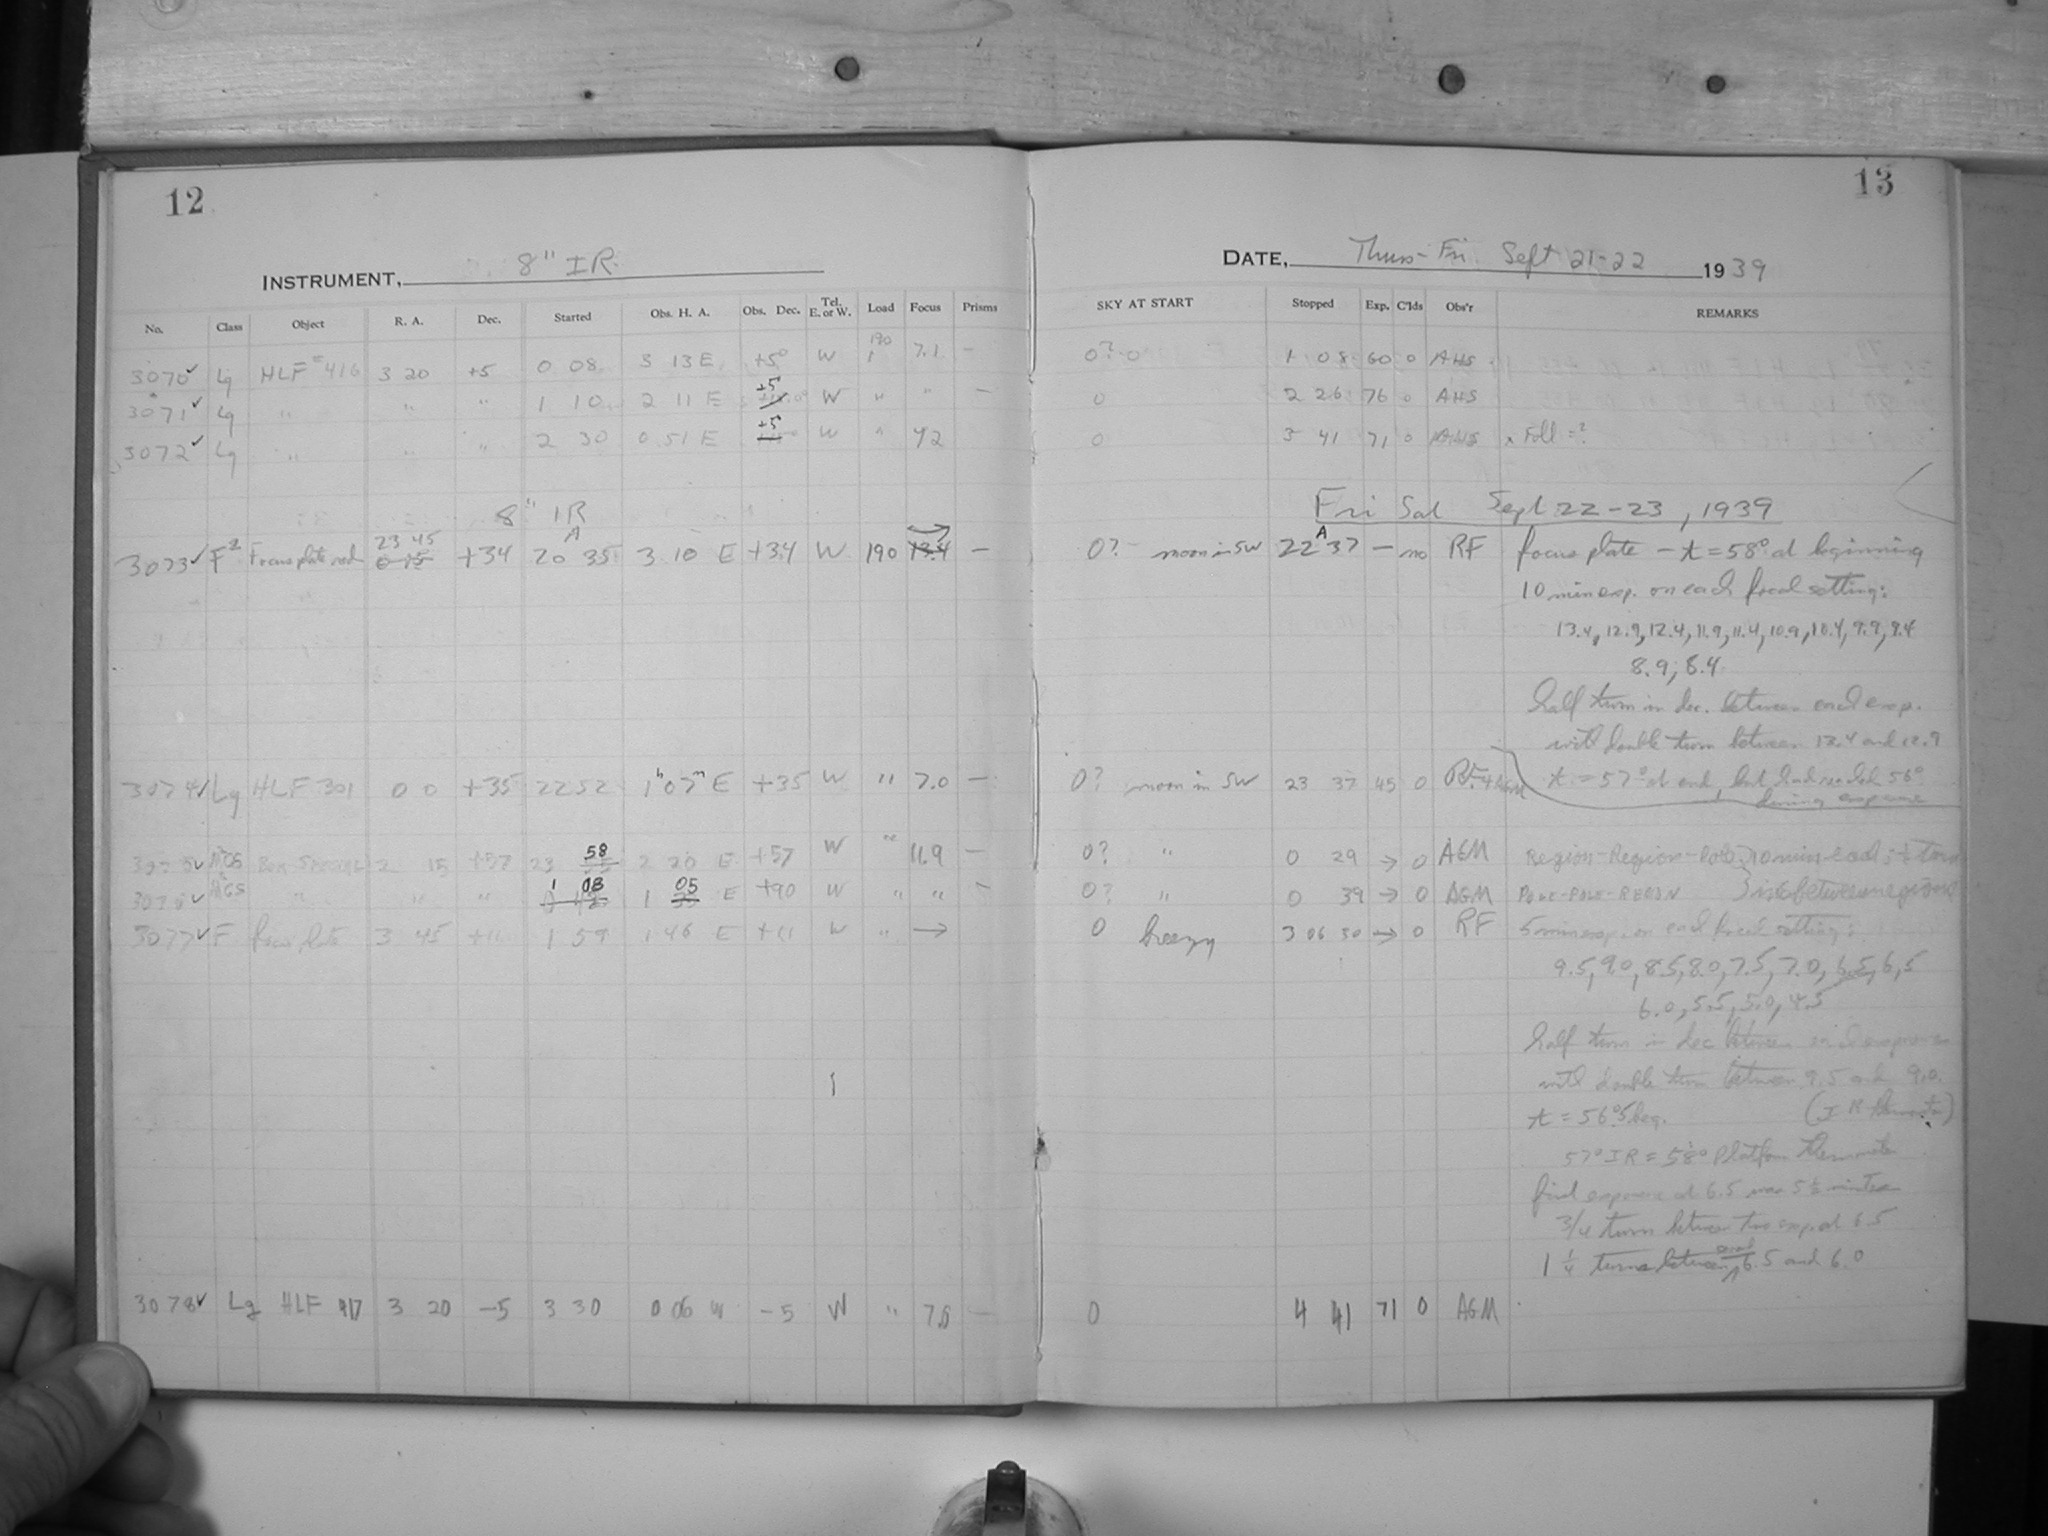 12
INSTRUMENT, 8" IR
No. Class Object R. A. Dec. Started Obs. H. A. Obs. Dec. Tel. E. or W. Load Focus Prisms
3070✓ Lg HLF 416 3 20 +5 0 08 3 13 E +5° W 190 7.1 —
3071✓ Lg " " " 1 10 2 11 E +5 W " " —
3072✓ Lg " " " 2 30 0 51 E +5 W "
8" IR
3073✓ F² Focus plate 23 45 +34 20 35 3 10 E +34 W 190 13.4 —
3074✓ Lg HLF 301 0 0 +35 22 52 1ʰ07ᵐ E +35 W " 7.0 —
3075✓ 2 15 +57 23 58 2 20 E +57 W " 11.9 —
3076✓ " " " 1 08 1 05 E +90 W " " —
3077✓ F focus plate 3 45 +11 1 59 1 46 E +11 W " →
3078✓ Lg HLF 417 3 20 -5 3 30 0 06 W -5 W " —
13
DATE, Thurs-Fri Sept 21-22 1939
SKY AT START Stopped Exp. C'lds Obs'r REMARKS
0?-0 1 08 60 0 AHS
0 2 26 76 0 AHS
0 3 41 71 0 AHS x Foll = ?
Fri Sat Sept 22-23, 1939
0? moon in SW 22 37 — no RF focus plate — t = 58° at beginning
10 min exp. on each focal setting:
13.4, 12.9, 12.4, 11.9, 11.4, 10.9, 10.4, 9.9, 9.4
8.9, 8.4
half turn in dec. between each exp.
with double turn between 13.4 and 12.9
t = 57° at end, but had reached 56°
during exposure
0? moon in SW 23 37 45 0 RF + AGM
0? " 0 29 → 0 AGM REGION-REGION-POLE 10 min each; ½ turn
0? " 0 39 → 0 AGM POLE-POLE-REGION between regions
0 breezy 3 06 30 → 0 RF 5 min exp. on each focal setting:
9.5, 9.0, 8.5, 8.0, 7.5, 7.0, 6.5, 6.5
6.0, 5.5, 5.0, 4.5
half turn in dec between each exposure
with double turn between 9.5 and 9.0
t = 56°.5 beg. (I R thermometer)
57° IR = 58° Platform thermometer
first exposure at 6.5 was 5½ minutes
3/4 turn between two exp. at 6.5
1 ¼ turns between second 6.5 and 6.0
0 4 41 71 0 AGM